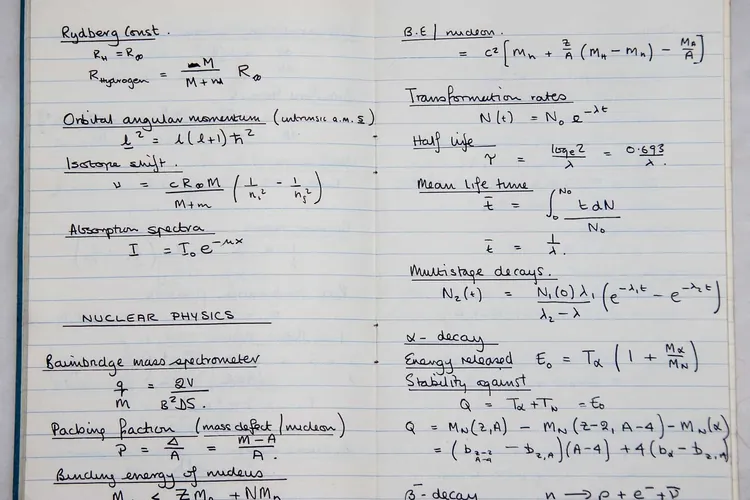 Rydberg Const.
R_H = R_∞
R_Hydrogen = M / (M + m) R_∞
Orbital angular momentum (intrinsic a.m. s)
l² = l(l+1)ħ²
Isotope shift.
ν = c R_∞ M / (M+m) (1/n_i² - 1/n_f²)
Absorption spectra
I = I_0 e^{-μx}
NUCLEAR PHYSICS
Bainbridge mass spectrometer
q/m = 2V / B²DS.
Packing fraction (mass defect / nucleon)
P = Δ/A = (M-A)/A.
Binding energy of nucleus
B.E / nucleon.
= c² [ M_n + Z/A (M_H - M_n) - M_A/A ]
Transformation rates
N(t) = N_0 e^{-λt}
Half life
τ = log_e 2 / λ = 0.693 / λ.
Mean life time
t̄ = ∫_0^{N_0} t dN / N_0
t̄ = 1/λ.
Multistage decays.
N_2(t) = N_1(0) λ_1 / (λ_2 - λ) (e^{-λ_1 t} - e^{-λ_2 t})
α- decay
Energy released E_0 = T_α (1 + M_α/M_N)
Stability against
Q = T_α + T_N = E_0
Q = M_N(Z,A) - M_N(Z-2, A-4) - M_N(α)
= (b_{Z-2, A-4} - b_{Z,A})(A-4) + 4(b_α - b_{Z,A}
β⁻ decay n → p + e⁻ + ν̄